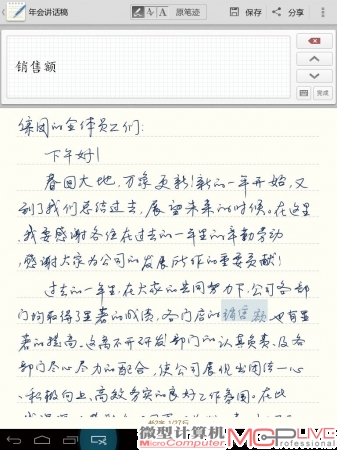 年会讲话稿
原笔迹
保存
分享
销售额
完成
集团的全体员工们:
下午好!
春回大地,万象更新!新的一年开始,又
到了我们总结过去,展望未来的时候。在这里
,我要感谢各位在过去的一年里的辛勤劳动
,感谢大家为公司的发展所作的重要贡献!
过去的一年里,在大家的共同努力下,公司各部
门均取得了显著的成绩,各门店的销售额也有显
著的提高。这离不开研发部门的认真负责,及各
部门尽心尽力的配合,使公司展现出团结一心
、积极向上,高效务实的良好工作氛围。在此
452字 1/27页
微型计算机
MicroComputer
MCPLIVE
Professional